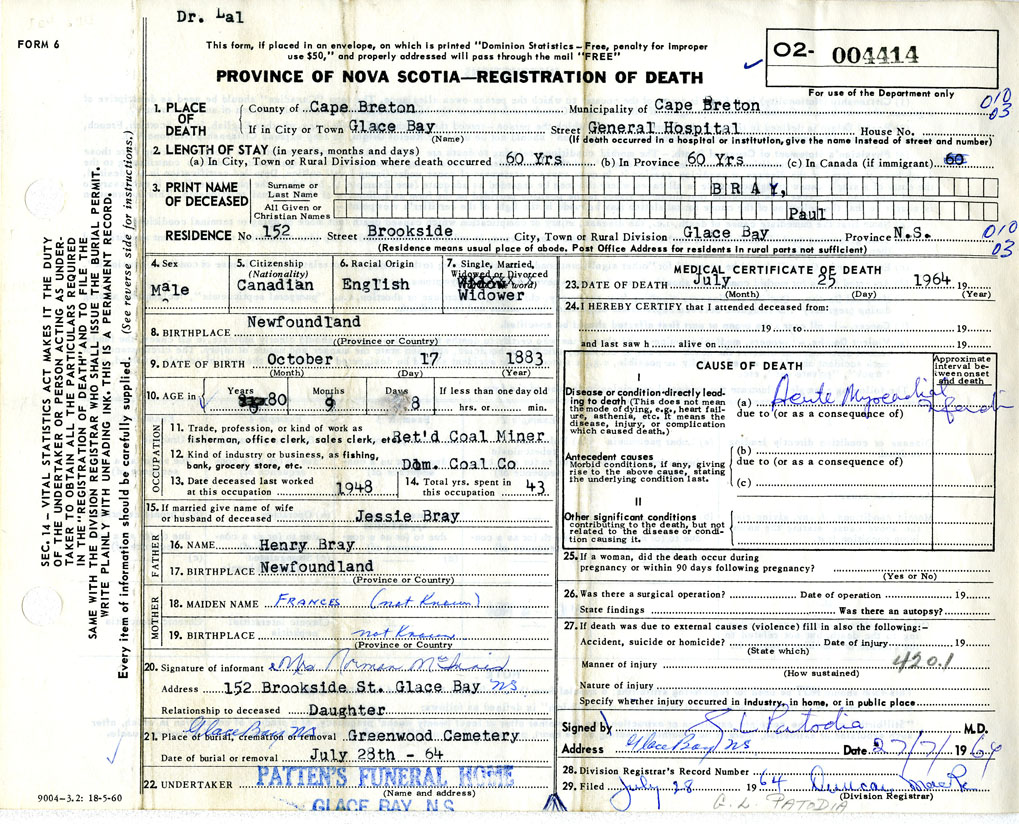 Dr. Lal
FORM 6
This form, if placed in an envelope, on which is printed "Dominion Statistics – Free, penalty for improper
use $50," and properly addressed will pass through the mail "FREE"
PROVINCE OF NOVA SCOTIA—REGISTRATION OF DEATH
O2- 004414
For use of the Department only
010
03
SEC. 14 – VITAL STATISTICS ACT MAKES IT THE DUTY
OF THE UNDERTAKER OR PERSON ACTING AS UNDER-
TAKER TO OBTAIN ALL THE PARTICULARS REQUIRED
IN THE "REGISTRATION OF DEATH" AND TO FILE THE
SAME WITH THE DIVISION REGISTRAR WHO SHALL ISSUE THE BURIAL PERMIT.
WRITE PLAINLY WITH UNFADING INK. THIS IS A PERMANENT RECORD.
Every item of information should be carefully supplied. (See reverse side for instructions.)
1. PLACE OF DEATH
County of Cape Breton Municipality of Cape Breton
If in City or Town Glace Bay Street General Hospital House No.
(Name) (If death occurred in a hospital or institution, give the name instead of street and number)
2. LENGTH OF STAY (in years, months and days)
(a) In City, Town or Rural Division where death occurred 60 Yrs (b) In Province 60 Yrs (c) In Canada (if immigrant) 60
3. PRINT NAME OF DECEASED
Surname or Last Name BRAY,
All Given or Christian Names Paul
RESIDENCE No 152 Street Brookside City, Town or Rural Division Glace Bay Province N.S.
010
03
(Residence means usual place of abode. Post Office Address for residents in rural parts not sufficient)
4. Sex
Male
5. Citizenship
(Nationality)
Canadian
6. Racial Origin
English
7. Single, Married,
Widowed or Divorced
(word)
Widower
8. BIRTHPLACE Newfoundland
(Province or Country)
9. DATE OF BIRTH October 17 1883
(Month) (Day) (Year)
10. AGE in Years 80 Months 9 Days 8 If less than one day old
hrs. or min.
OCCUPATION
11. Trade, profession, or kind of work as
fisherman, office clerk, sales clerk, etc. Ret'd Coal Miner
12. Kind of industry or business, as fishing,
bank, grocery store, etc. Dom. Coal Co
13. Date deceased last worked
at this occupation 1948
14. Total yrs. spent in
this occupation 43
15. If married give name of wife
or husband of deceased Jessie Bray
FATHER
16. NAME Henry Bray
17. BIRTHPLACE Newfoundland
(Province or Country)
MOTHER
18. MAIDEN NAME FRANCES (not Known)
19. BIRTHPLACE not Known
(Province or Country)
20. Signature of informant Mrs Norman
Address 152 Brookside St. Glace Bay NS.
Relationship to deceased Daughter
Glace Bay NS
21. Place of burial, cremation or removal Greenwood Cemetery
Date of burial or removal July 28th - 64
22. UNDERTAKER PATTEN'S FUNERAL HOME
(Name and address)
GLACE BAY, N.S.
9004–3.2: 18-5-60
MEDICAL CERTIFICATE OF DEATH
23. DATE OF DEATH July 25 1964 19
(Month) (Day) (Year)
24. I HEREBY CERTIFY that I attended deceased from:
19 to 19
and last saw h alive on 19
CAUSE OF DEATH
Approximate
interval be-
tween onset
and death
I
Disease or condition directly lead-
ing to death (This does not mean
the mode of dying, e.g., heart fail-
ure, asthenia, etc. It means the
disease, injury, or complication
which caused death.)
(a) Acute Myocardial Infarct
due to (or as a consequence of)
Antecedent causes
Morbid conditions, if any, giving
rise to the above cause, stating
the underlying condition last.
(b)
due to (or as a consequence of)
(c)
II
Other significant conditions
contributing to the death, but not
related to the disease or condi-
tion causing it.
25. If a woman, did the death occur during
pregnancy or within 90 days following pregnancy?
(Yes or No)
26. Was there a surgical operation? Date of operation 19
State findings Was there an autopsy?
27. If death was due to external causes (violence) fill in also the following:–
Accident, suicide or homicide? Date of injury 19
(State which)
Manner of injury 420.1
(How sustained)
Nature of injury
Specify whether injury occurred in industry, in home, or in public place
Signed by G L Patodia M.D.
Address Glace Bay NS Date 27/7/1964
28. Division Registrar's Record Number
29. Filed July 28 1964 Duncan
(Division Registrar)
G. L. PATODIA